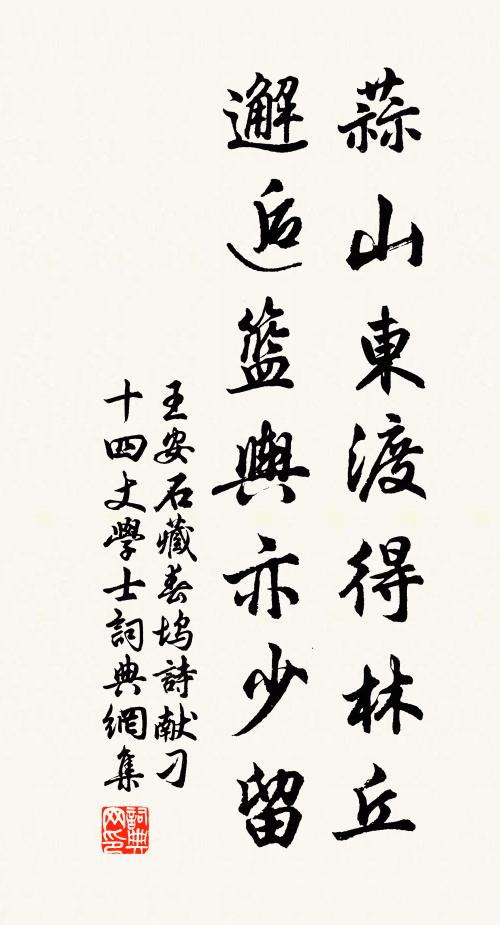 蒜山東渡得林丘
邂逅籃輿亦少留
王安石藏春塢詩献刁
十四丈學士詞典網集
詞典
网印